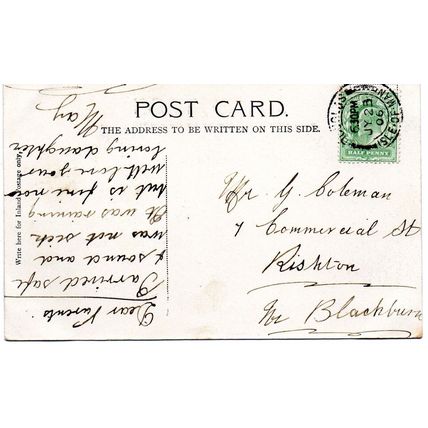 POST CARD.
THE ADDRESS TO BE WRITTEN ON THIS SIDE.
Write here for Inland Postage only.
Dear Parents
I arrived safe
& sound and
was not sick
It was raining
but is fine now
with love your
loving daughter
May
Mr G. Coleman
7 Commercial St
Rishton
Nr Blackburn
DOUGLAS
6.30PM
JY 23
06
ISLE-OF-MAN
HALF PENNY